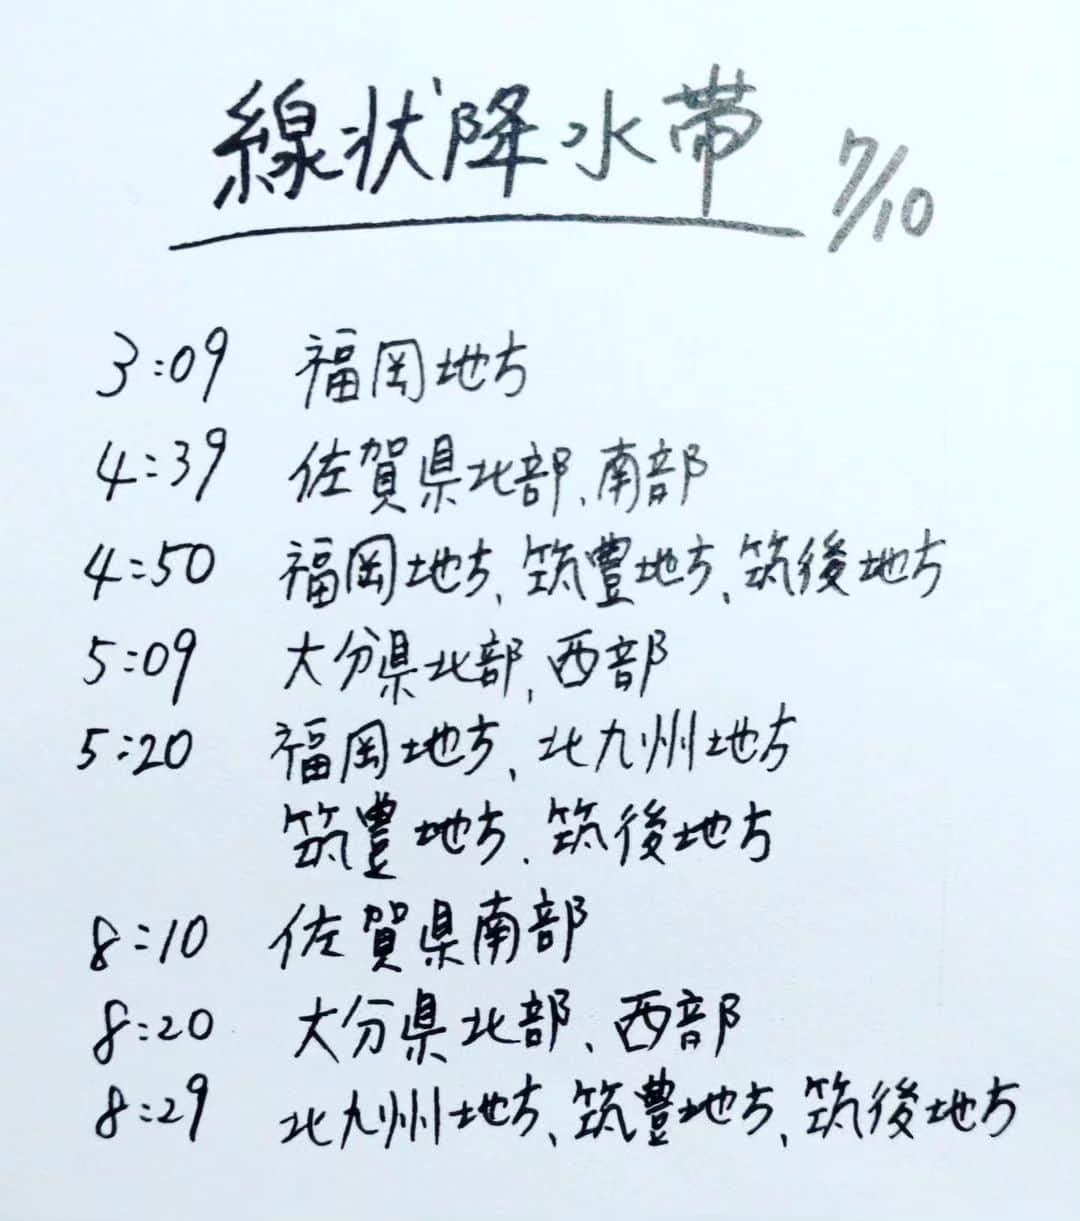 線状降水帯 7/10
3:09 福岡地方
4:39 佐賀県北部、南部
4:50 福岡地方、筑豊地方、筑後地方
5:09 大分県北部、西部
5:20 福岡地方、北九州地方
筑豊地方、筑後地方
8:10 佐賀県南部
8:20 大分県北部、西部
8:29 北九州地方、筑豊地方、筑後地方